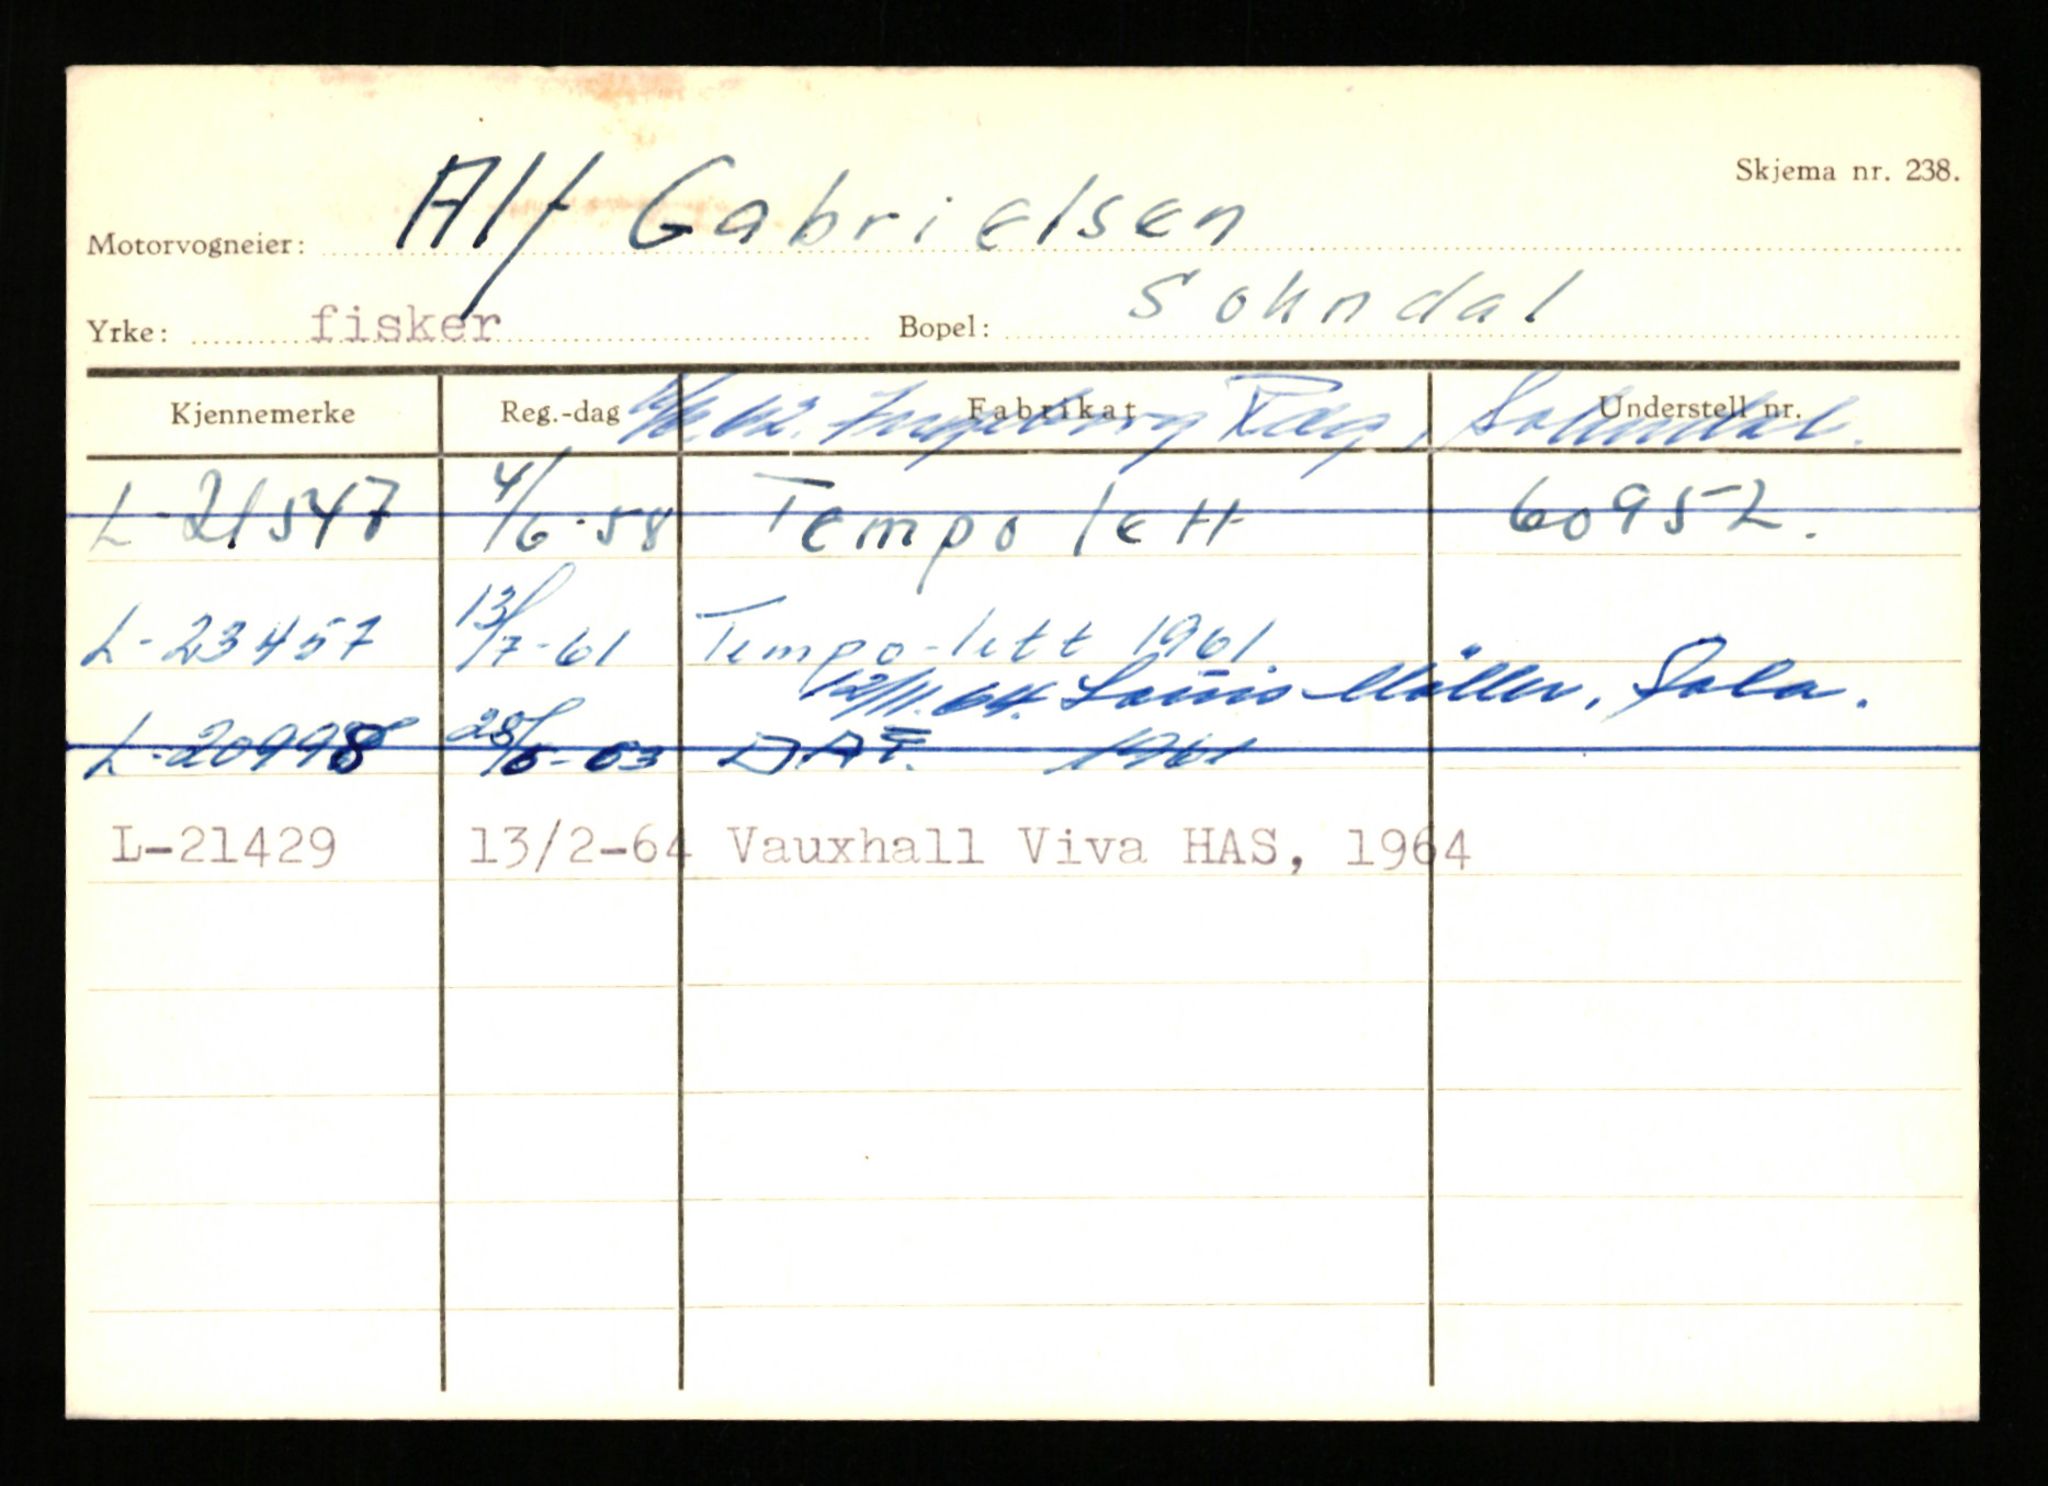 Skjema nr. 238.
Motorvogneier: Alf Gabrielsen
Yrke: fisker Bopel: Sokndal
Kjennemerke Reg.-dag Fabrikat Understell nr.
Ingeborg Sokndal.
L-21547 4/6-58 Tempo lett 60952.
L-23457 13/7-61 Tempo-lett 1961.
12/11.64. Louis Möller, Sola.
L-20998 28/5-63 DAF. 1961
L-21429 13/2-64 Vauxhall Viva HAS, 1964